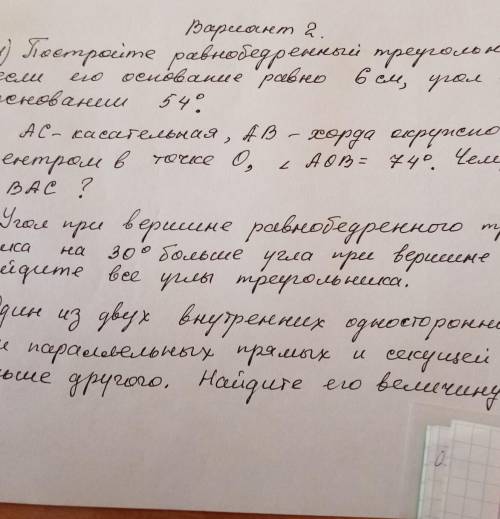 Вариант 2.
1) Постройте равнобедренный треугольн
если его основание равно 6 см, угол
основании 54°.
АС - касательная, АВ - хорда окружно
ентром в точке О, ∠ АОВ = 74°. Чем
ВАС ?
Угол при вершине равнобедренного тр
ика на 30° больше угла при вершине
йдите все углы треугольника.
Один из двух внутренних односторонни
и параллельных прямых и секущей
ньше другого. Найдите его величину